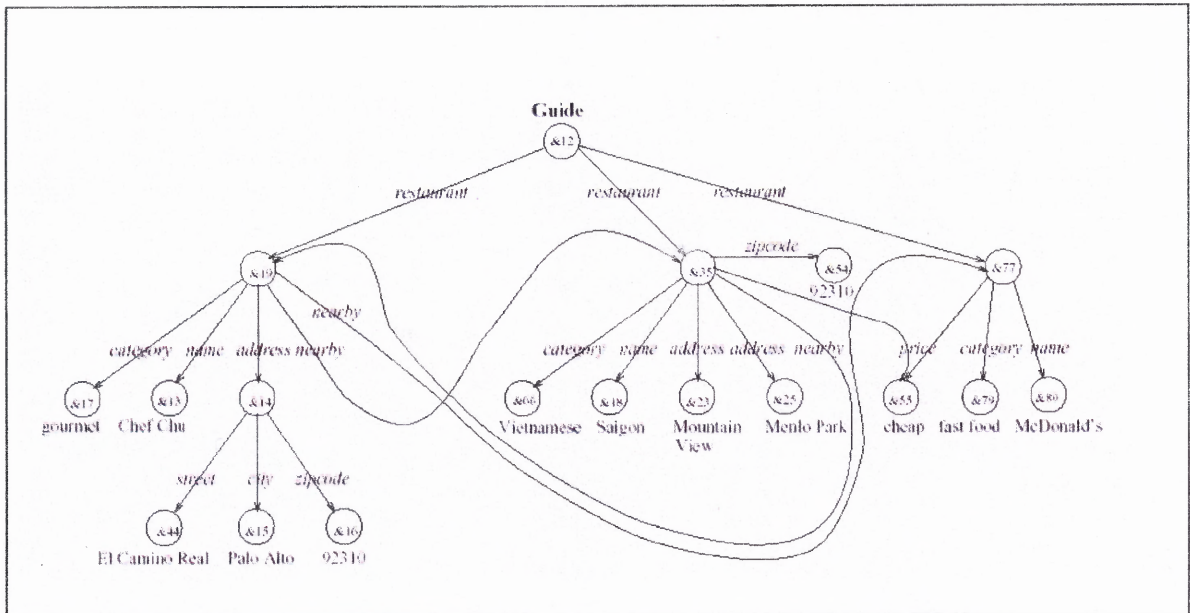 Guide
&12
restaurant restaurant restaurant
zipcode
&19 &35 &54 &77
92310
nearby
category name address nearby category name address address nearby price category name
&17 &13 &14 &66 &18 &23 &25 &55 &79 &80
gourmet Chef Chu Vietnamese Saigon Mountain Menlo Park cheap fast food McDonald's
View
street city zipcode
&44 &15 &16
El Camino Real Palo Alto 92310